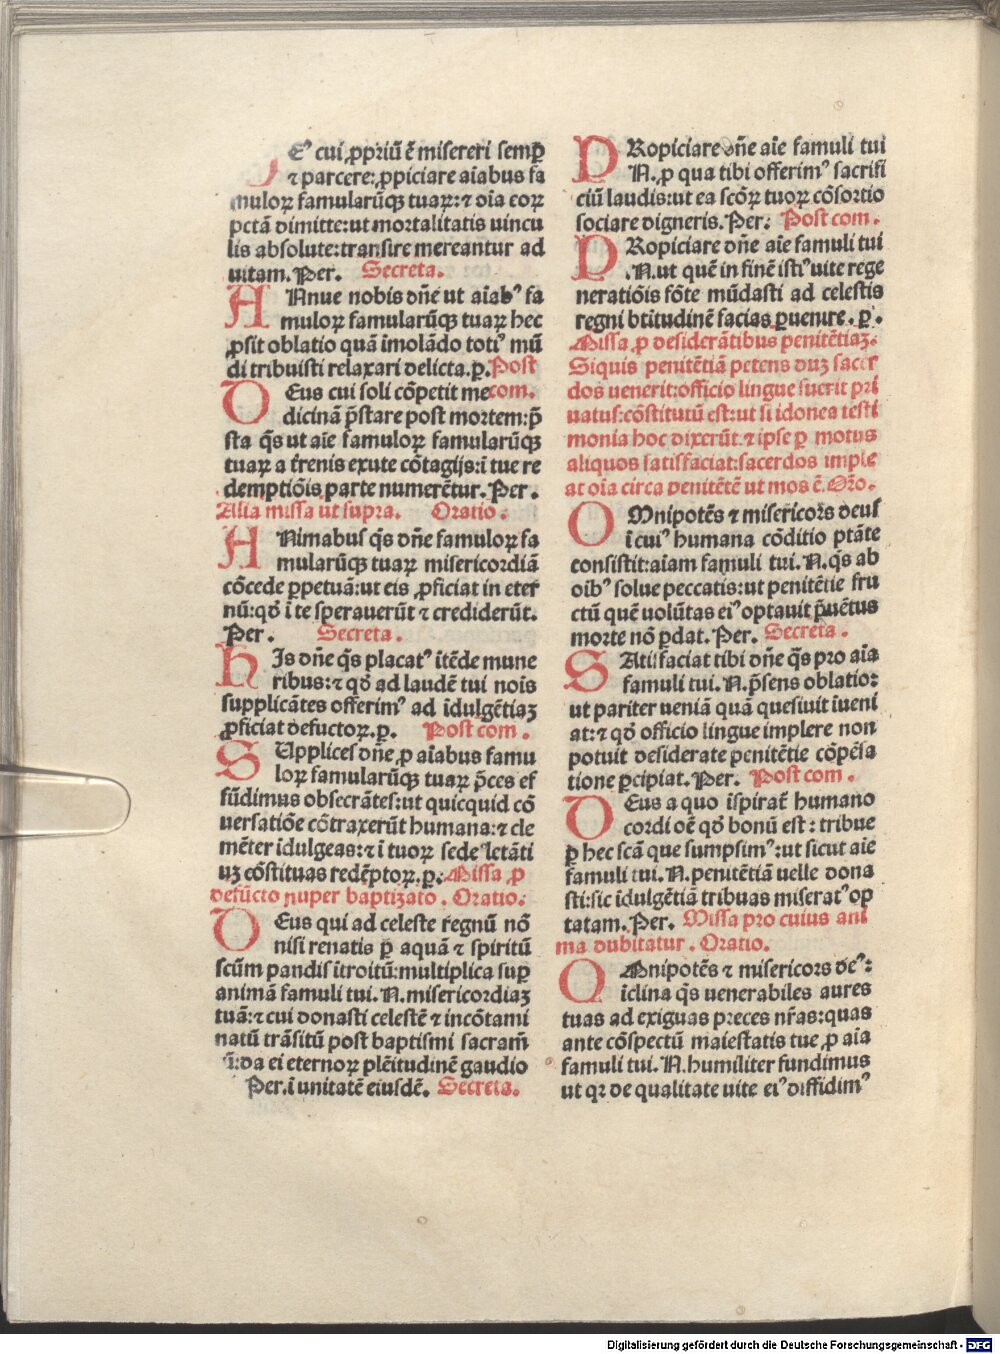 Eꝰ cui ꝓpriū ē misereri semꝑ
⁊ parcere: ꝓpiciare aīabus fa
muloꝝ famularūqꝫ tuaꝝ: ⁊ oīa eoꝝ
pctā dimitte: ut mortalitatis uincu
lis absolute: transire mereantur ad
uitam. Per. Secreta.
ANnue nobis dñe ut aīabꝰ fa
muloꝝ famularūqꝫ tuaꝝ hec
ꝓsit oblatio quā īmolādo totiꝰ mū
di tribuisti relaxari delicta. p. Post
DEus cui soli cōpetit me com.
dicinā p̄stare post mortem: p̄
sta q̄s ut aīe famuloꝝ famularūqꝫ
tuaꝝ a t̄renis exute cōtagijs: ī tue re
demptiōis parte numerētur. Per.
Alia missa ut supra. Oratio.
ANimabus q̄s dñe famuloꝝ fa
mularūqꝫ tuaꝝ misericordiā
cōcede ꝑpetuā: ut eis ꝓficiat in eter
nū: qđ ī te sperauerūt ⁊ crediderūt.
Per. Secreta.
HIs dñe q̄s placatꝰ ītēde mune
ribus: ⁊ qđ ad laudē tui nois
supplicātes offerimꝰ ad īdulgētiaꝫ
ꝓficiat defūctoꝝ. p. Post com.
SUpplices dñe ꝓ aīabus famu
loꝝ famularūqꝫ tuaꝝ p̄ces ef
fūdimus obsecrātes: ut quicquid cō
uersatiōe cōtraxerūt humana: ⁊ cle
mēter īdulgeas: ⁊ ī tuoꝝ sede letāti
uꝫ cōstituas redēptoꝝ. p. Missa ꝓ
defūcto nuper baptizato. Oratio.
DEus qui ad celeste regnū nō
nisi renatis ꝑ aquā ⁊ spiritū
scūm pandis ītroitū: multiplica suꝑ
animā famuli tui. N. misericordiaꝫ
tuā: ⁊ cui donasti celestē ⁊ incōtami
natū trāsitū post baptismi sacram̄
ū: da ei eternoꝝ plēitudinē gaudio
Per. ī unitatē eiusdē. Secreta.
PRopiciare dñe aīe famuli tui
N. ꝓ qua tibi offerimꝰ sacrifi
ciū laudis: ut ea scōꝝ tuoꝝ cōsortio
sociare digneris. Per. Post com.
PRopiciare dñe aīe famuli tui
.N. ut quē in finē istiꝰ uite rege
neratiōis fōte mūdasti ad celestis
regni btitudinē facias ꝑuenire. p.
Missa ꝓ desiderātibus penitētiaꝫ.
Siquis penitētiā petens duꝫ sacer
dos uenerit: officio lingue fuerit pri
uatus: cōstitutū est: ut si idonea testi
monia hoc dixerūt. ⁊ ipse ꝑ motus
aliquos satisfaciat: sacerdos imple
at oīa circa penitētē ut mos ē. Oro.
OMnipotēs ⁊ misericors deus
ī cuiꝰ humana cōditio ptāte
consistit: aīam famuli tui. N. q̄s ab
oībꝰ solue peccatis: ut penitētie fru
ctū quē uolūtas eiꝰ optauit p̄uētus
morte nō ꝑdat. Per. Secreta.
SAtisfaciat tibi dñe q̄s pro aīa
famuli tui. N. p̄sens oblatio:
ut pariter ueniā quā quesiuit īueni
at: ⁊ qđ officio lingue implere non
potuit desiderate penitētie cōpēsa
tione ꝑcipiat. Per. Post com.
DEus a quo īspirat̄ humano
cordi oē qđ bonū est: tribue
ꝑ hec scā que sumpsimꝰ: ut sicut aīe
famuli tui. N. penitētiā uelle dona
sti: sic īdulgētiā tribuas miseratꝰ op
tatam. Per. Missa pro cuius ani
ma dubitatur. Oratio.
OMnipotēs ⁊ misericors deꝰ:
īclina q̄s uenerabiles aures
tuas ad exiguas preces nr̄as: quas
ante cōspectū maiestatis tue ꝓ aīa
famuli tui. N. humiliter fundimus
ut qꝛ de qualitate uite eiꝰ diffidimꝰ
Digitalisierung gefördert durch die Deutsche Forschungsgemeinschaft - DFG